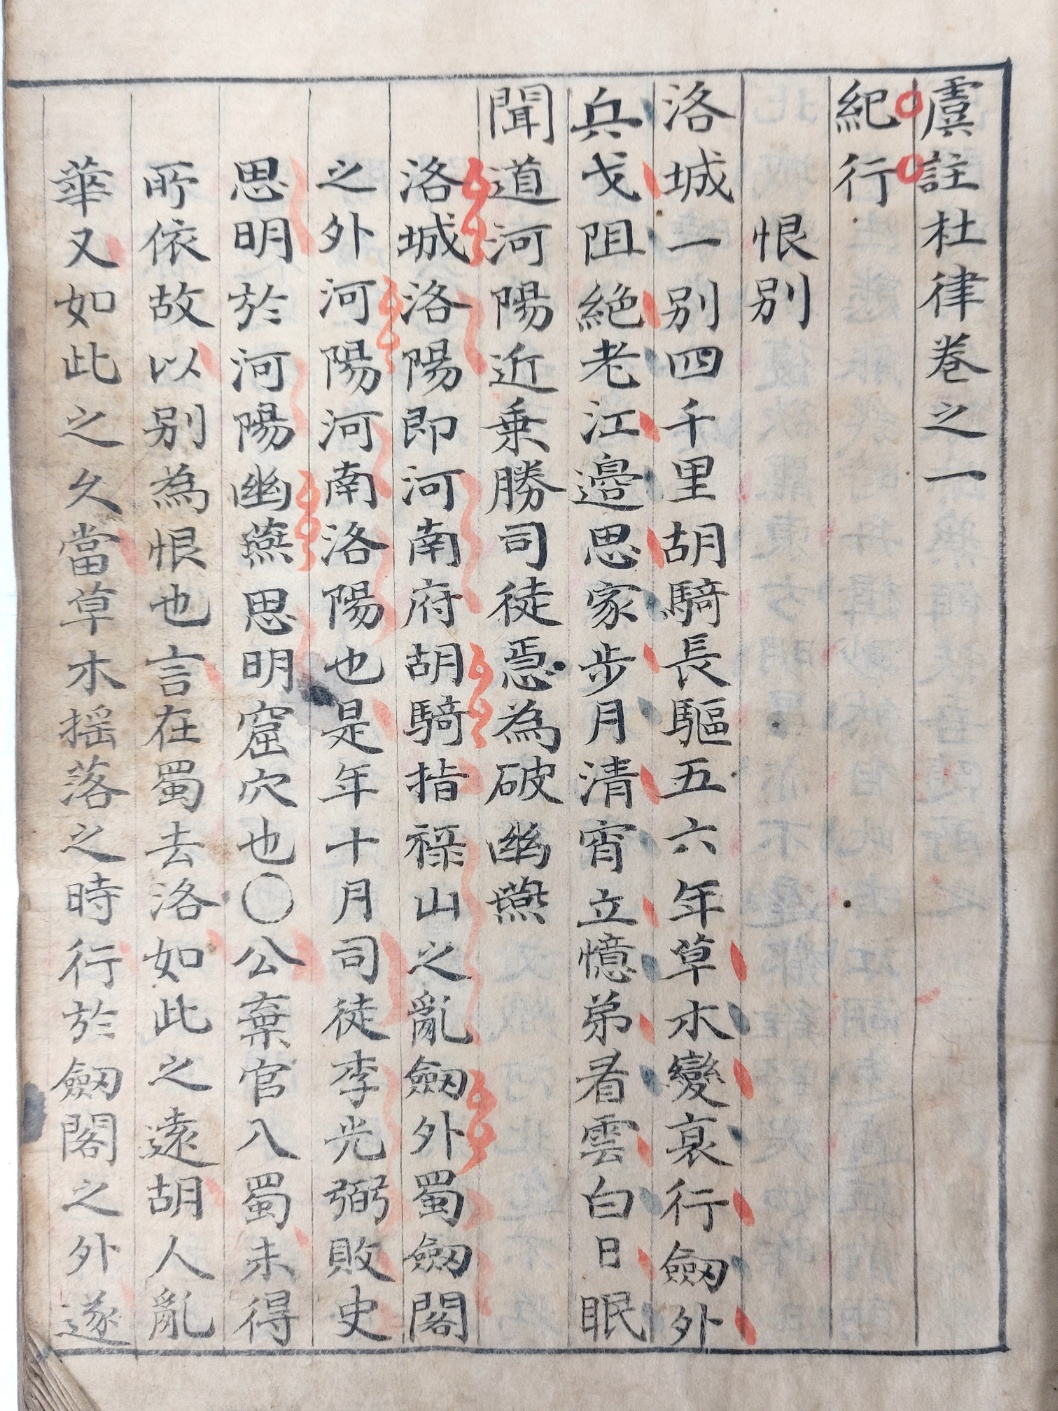 虞註杜律卷之一
紀行
恨别
洛城一别四千里胡騎長驅五六年草木變衰行劒外
兵戈阻絶老江邉思家步月清宵立憶弟看雲白日眠
聞道河陽近乗勝司徒急為破幽燕
洛城洛陽即河南府胡騎指禄山之亂劒外蜀劒閣
之外河陽河南洛陽也是年十月司徒李光弼敗史
思明於河陽幽燕思明窟穴也〇公棄官入蜀未得
所依故以别為恨也言在蜀去洛如此之遠胡人亂
華又如此之久當草木摇落之時行於劒閣之外遂